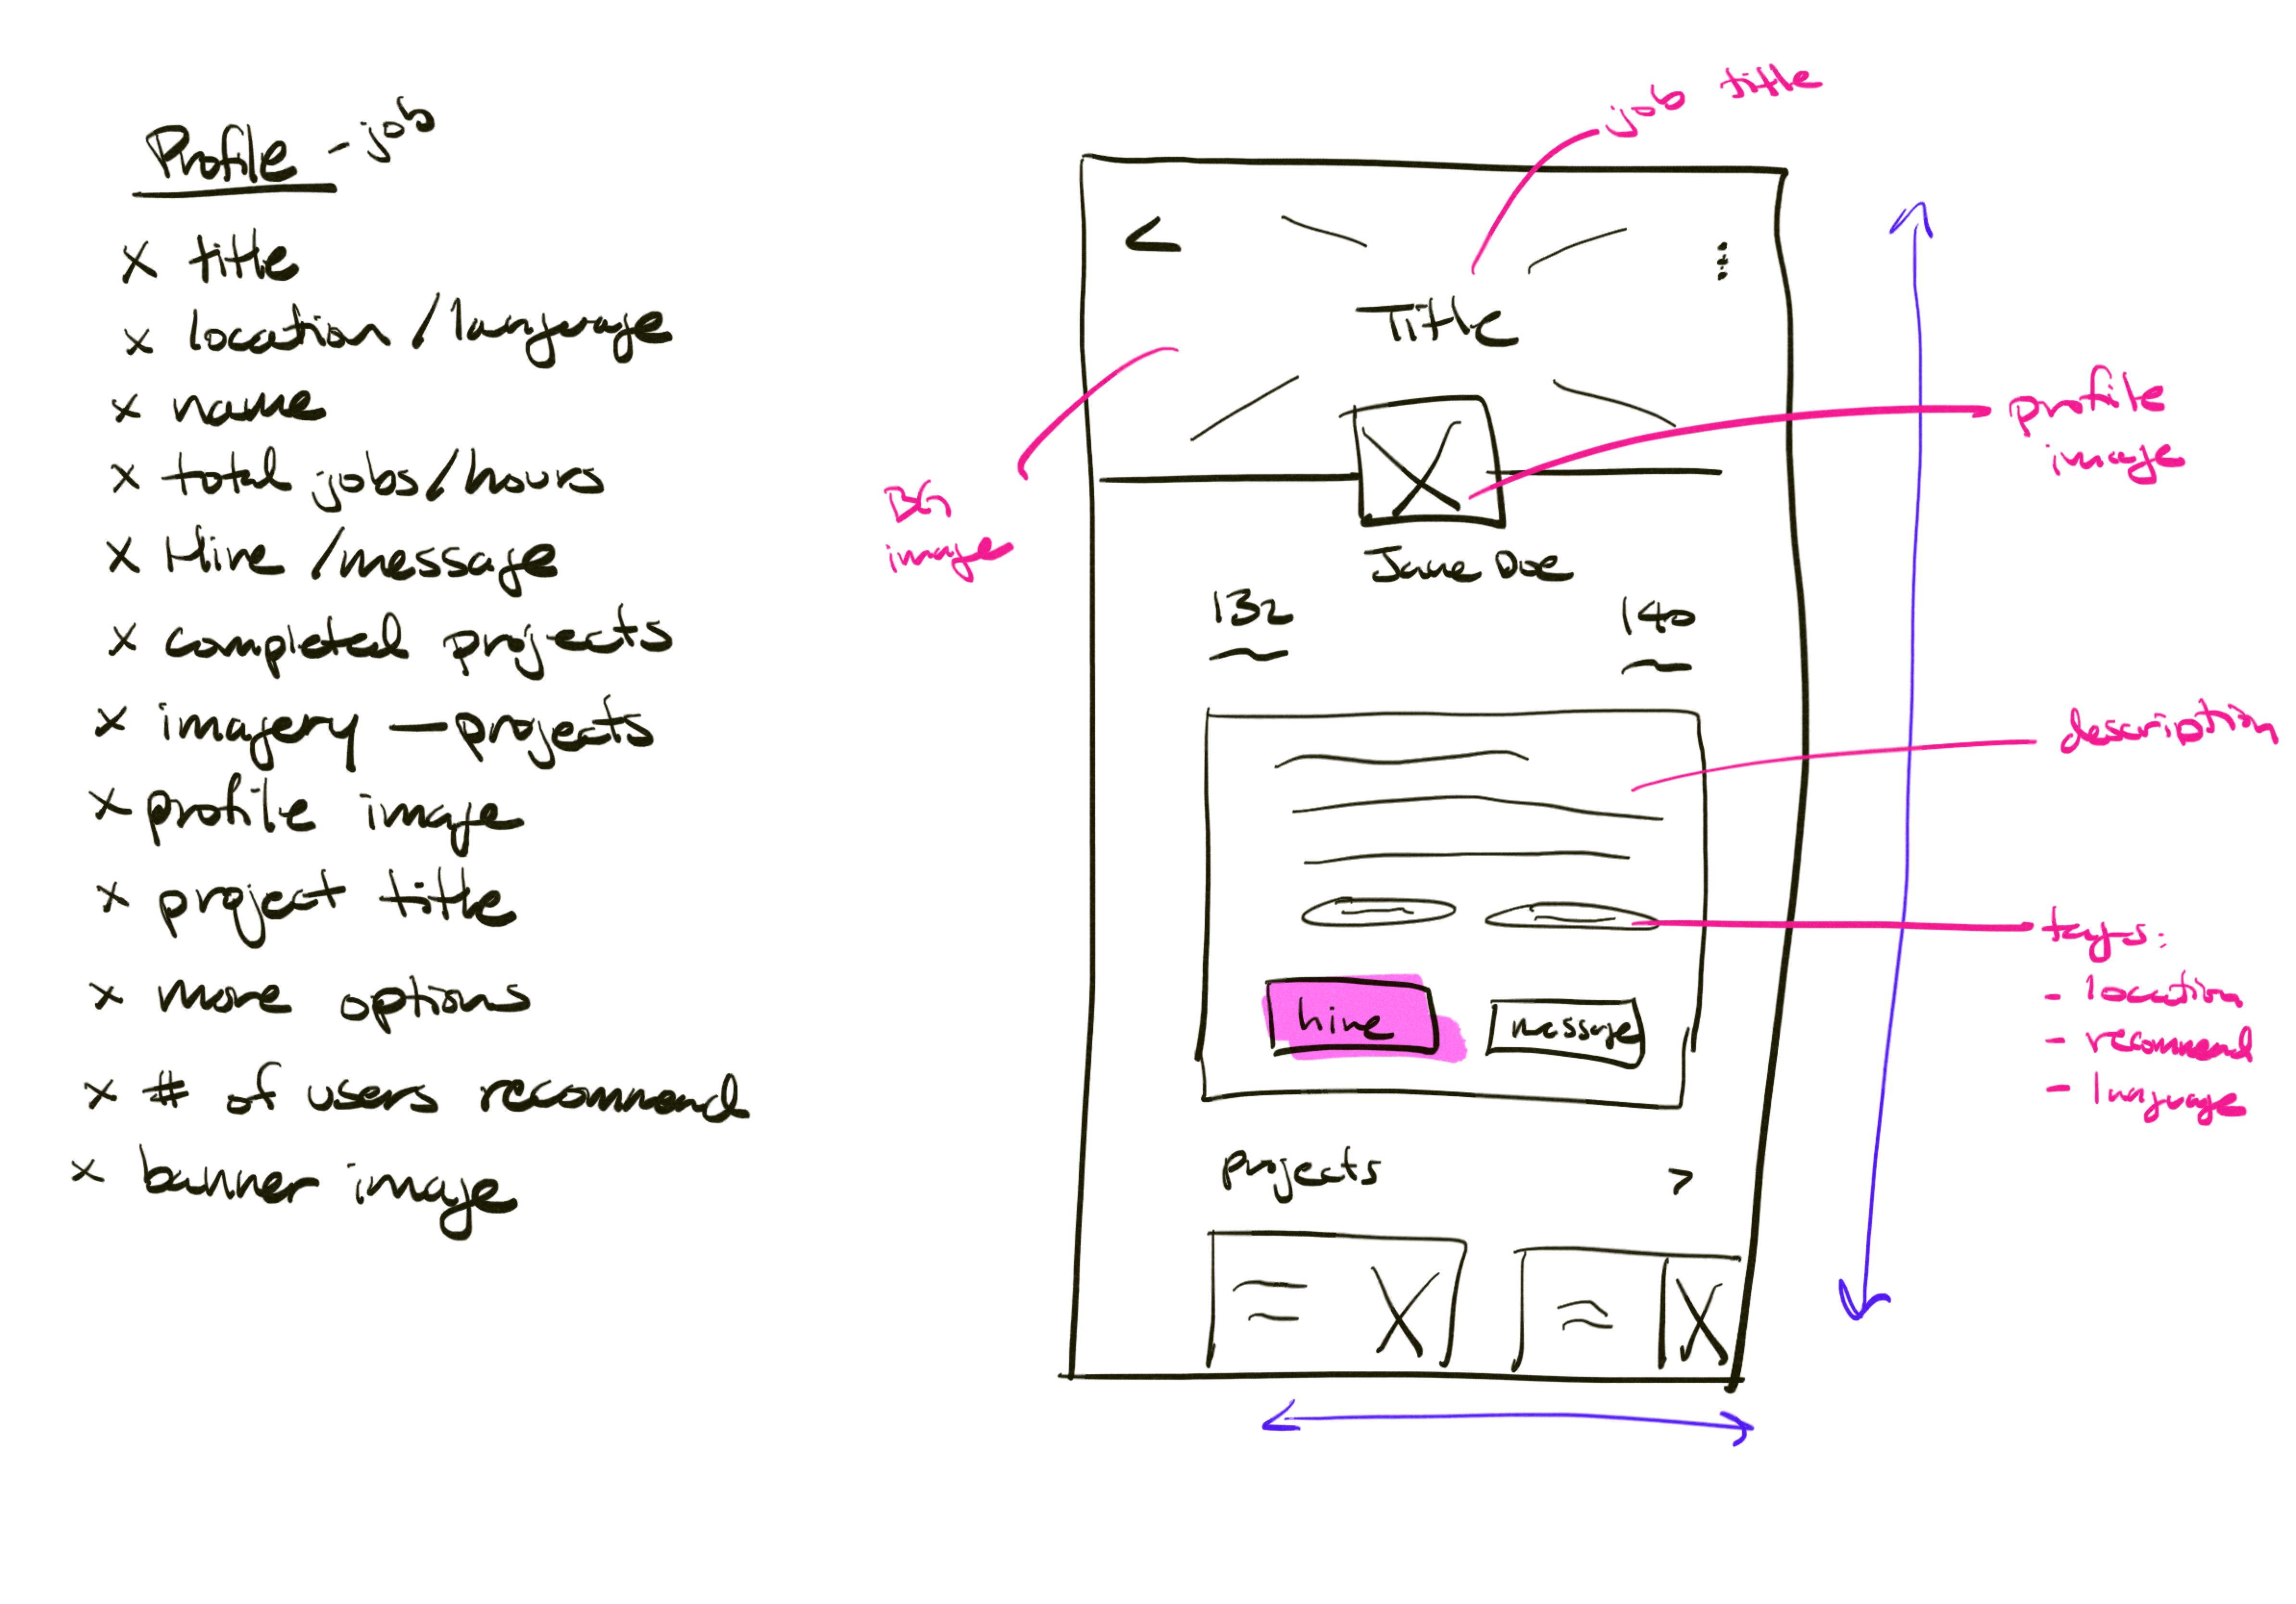 Profile - job
x title
x location / language
x name
x total jobs/hours
x Hire / message
x completed projects
x imagery — projects
x profile image
x project title
x more options
x # of users recommend
x banner image
job title
<
Title
profile
image
BG
image
Jane Doe
132
140
description
tags:
- location
- recommend
- language
hire
message
projects
>